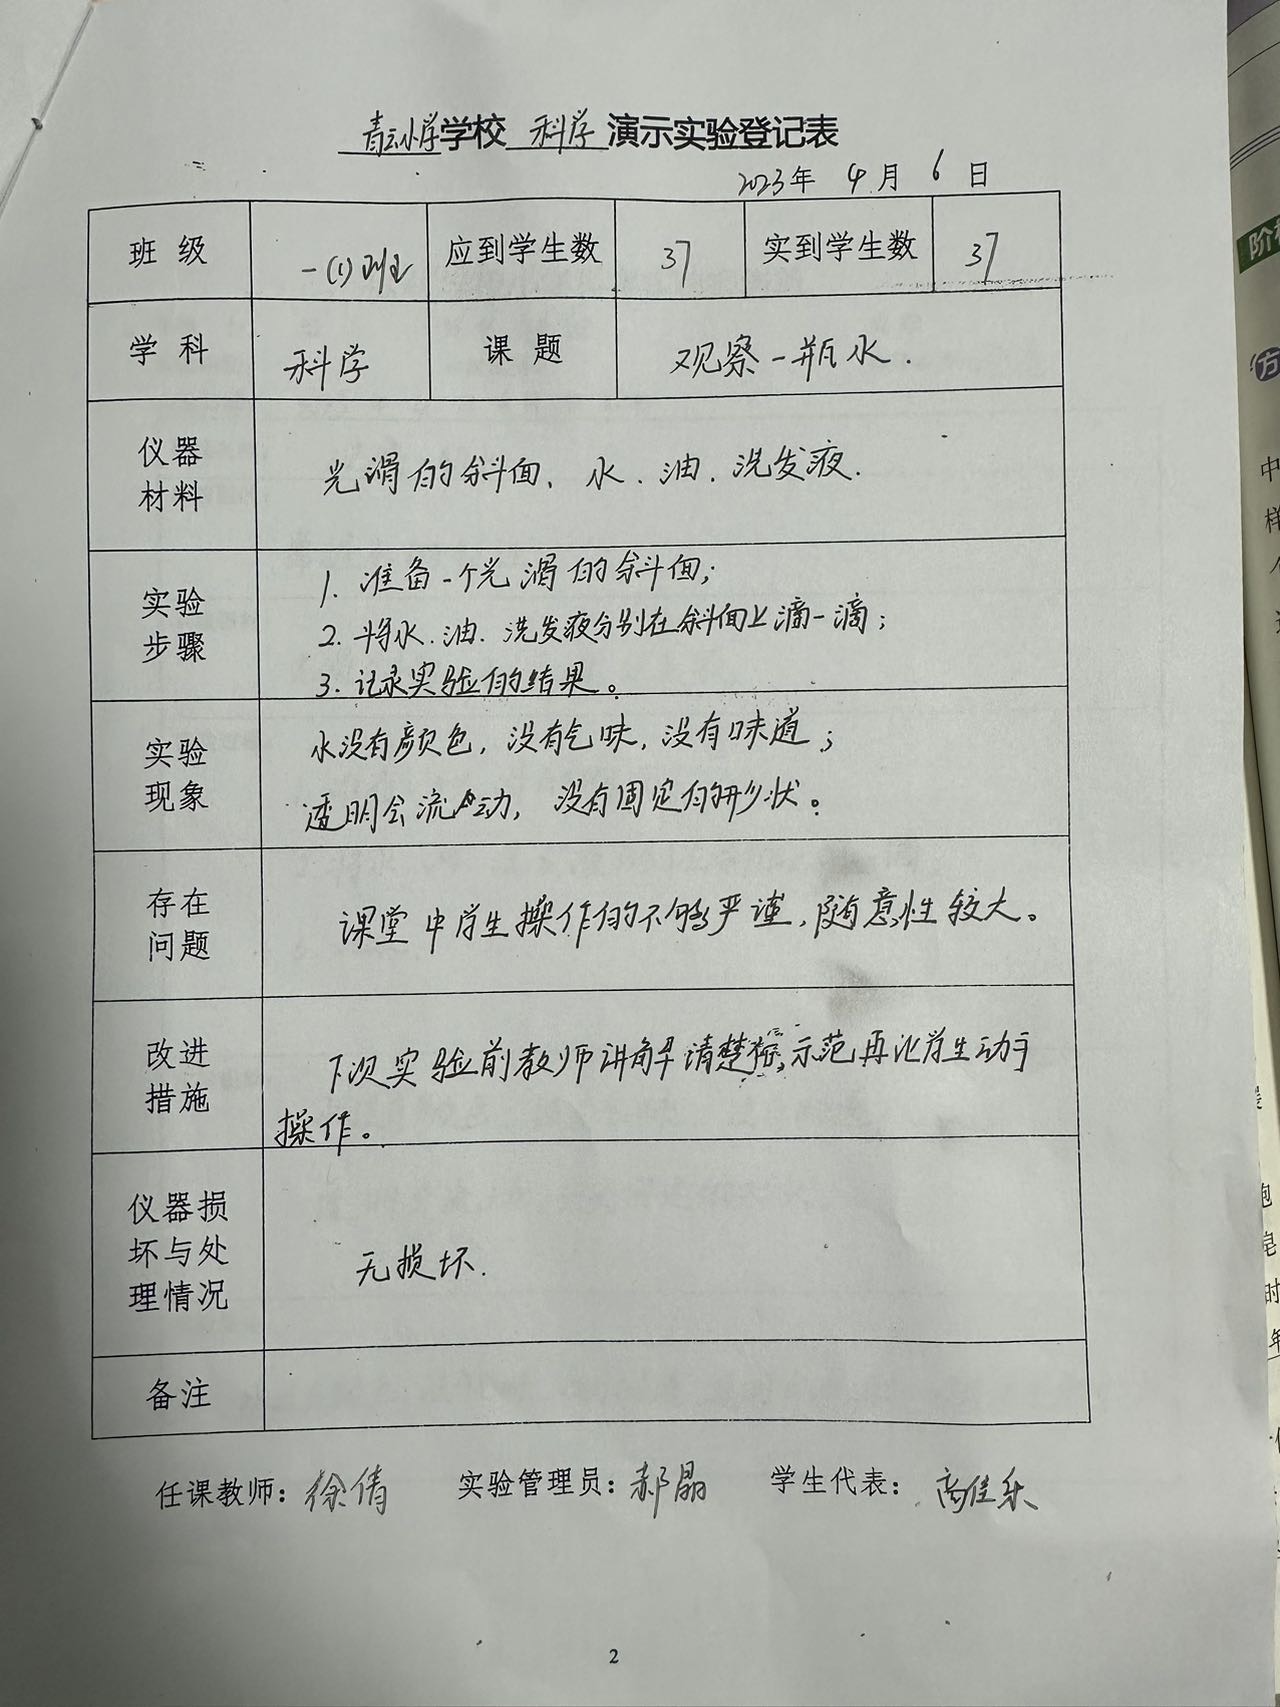 青云小学学校 科学 演示实验登记表
2023年 4月 6日
班级 一(1)班 应到学生数 37 实到学生数 37
学科 科学 课题 观察一瓶水.
仪器材料 光滑的斜面、水.油.洗发液.
实验步骤 1. 准备一个光滑的斜面;
2. 将水.油.洗发液分别在斜面上滴一滴;
3. 记录实验的结果。
实验现象 水没有颜色,没有气味,没有味道;
透明会流动,没有固定的形状。
存在问题 课堂中学生操作的不够严谨,随意性较大。
改进措施 下次实验前教师讲解清楚 示范再让学生动手
操作。
仪器损坏与处理情况 无损坏.
备注
任课教师: 徐倩 实验管理员: 郝晶 学生代表: 高佳乐
2
阶
方
中
样
泡
皂
时